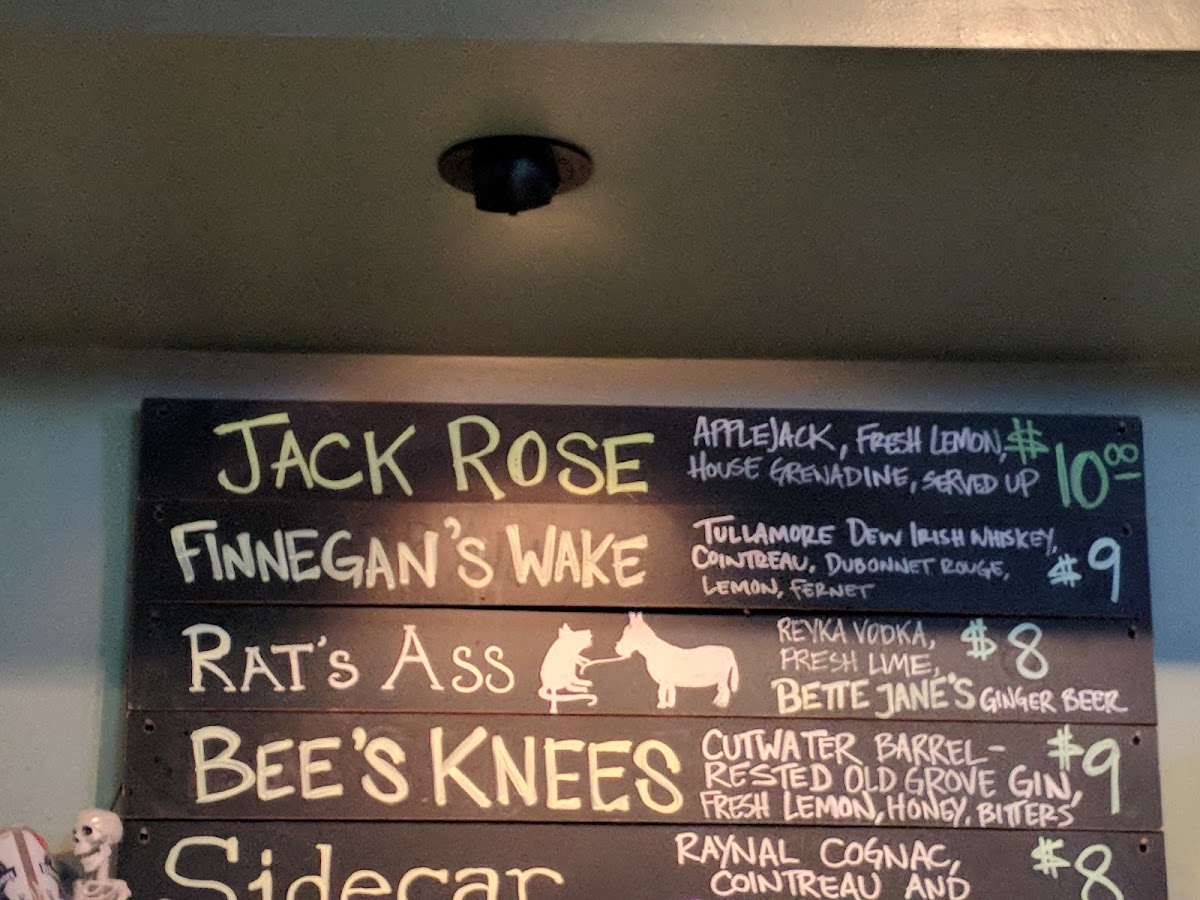 JACK ROSE APPLEJACK, FRESH LEMON, $10.00
HOUSE GRENADINE, SERVED UP
FINNEGAN'S WAKE TULLAMORE DEW IRISH WHISKEY,
COINTREAU, DUBONNET ROUGE, $9
LEMON, FERNET
RAT'S ASS REYKA VODKA, $8
FRESH LIME,
BETTE JANE'S GINGER BEER
BEE'S KNEES CUTWATER BARREL- $9
RESTED OLD GROVE GIN,
FRESH LEMON, HONEY, BITTERS
Sidecar RAYNAL COGNAC, $8
COINTREAU AND